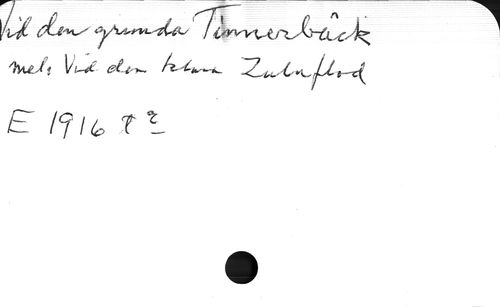 Vid den grunda Tinnerbäck
mel: Vid den klara Zuluflod
E 1916